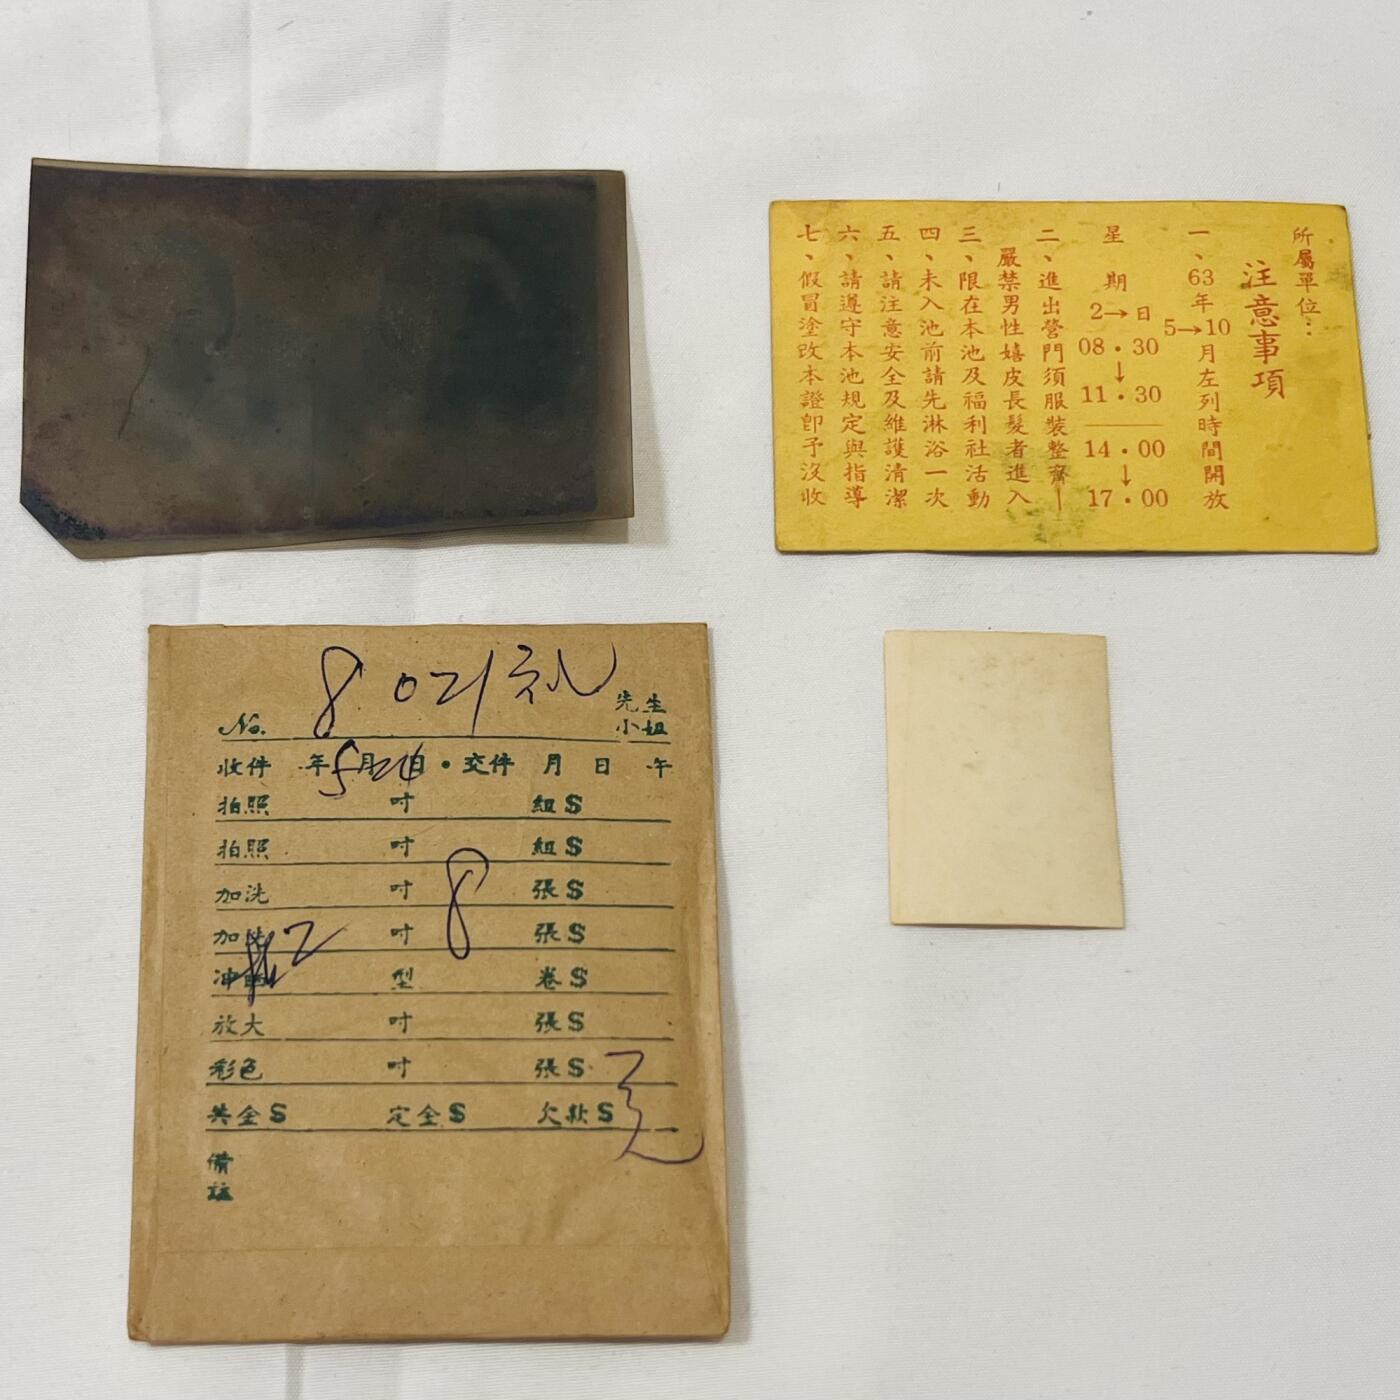 所屬單位：
注意事項
一、63年5→10月左列時間開放
星期2→日08·30↓11·30—14·00↓17·00
二、進出營門須服裝整齊—
嚴禁男性嬉皮長髮者進入
三、限在本池及福利社活動
四、未入池前請先淋浴一次
五、請注意安全及維護清潔
六、請遵守本池規定與指導
七、假冒塗改本證卽予沒收
No. 8021 先生
小姐
收件 年5月24日·交件 月 日 午
拍照 吋 組$
拍照 吋 組$
加洗 吋 張$
加洗 吋 8 張$
冲晒 #2 型 卷$
放大 吋 張$
彩色 吋 張$
共金$ 定金$ 欠款$
備
註